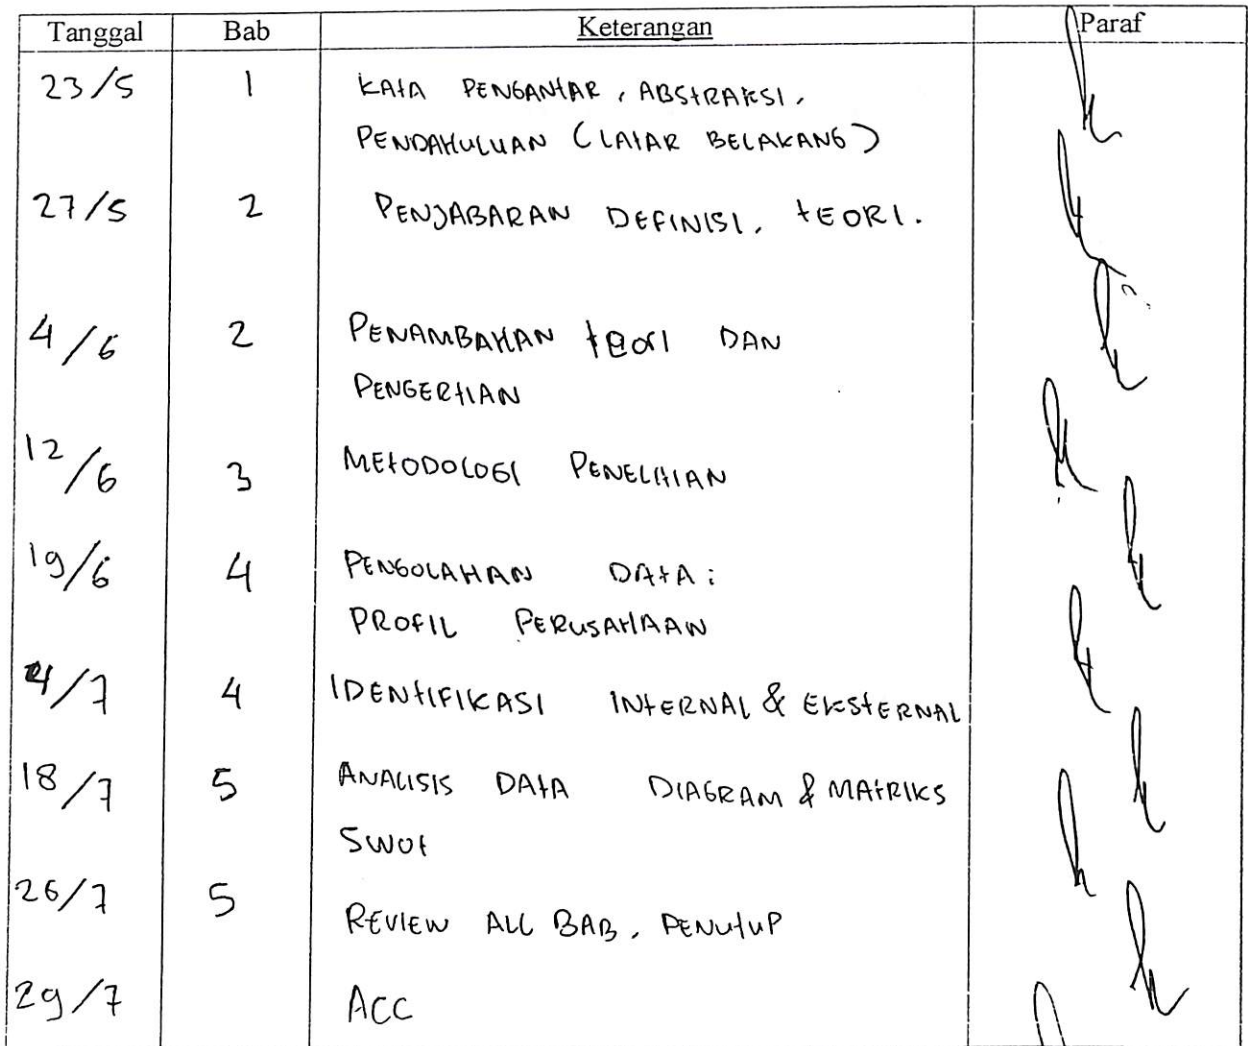 Tanggal Bab Keterangan Paraf
23/5 1 KATA PENGANTAR, ABSTRAKSI,
PENDAHULUAN (LATAR BELAKANG)
27/5 2 PENJABARAN DEFINISI, TEORI.
4/6 2 PENAMBAHAN teori DAN
PENGERTIAN
12/6 3 METODOLOGI PENELITIAN
19/6 4 PENGOLAHAN DATA:
PROFIL PERUSAHAAN
4/7 4 IDENTIFIKASI INTERNAL & EKSTERNAL
18/7 5 ANALISIS DATA DIAGRAM & MATRIKS
SWOT
26/7 5 REVIEW ALL BAB, PENUTUP
29/7 ACC